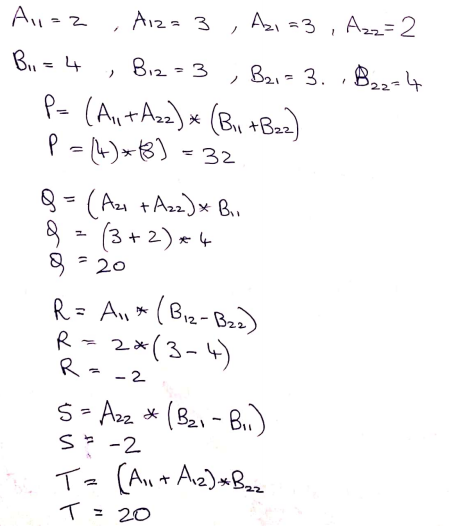 A₁₁ = 2 , A₁₂ = 3 , A₂₁ = 3 , A₂₂ = 2
B₁₁ = 4 , B₁₂ = 3 , B₂₁ = 3. , B₂₂ = 4
P = (A₁₁ + A₂₂) * (B₁₁ + B₂₂)
P = (4) * (8) = 32
Q = (A₂₁ + A₂₂) * B₁₁
Q = (3 + 2) * 4
Q = 20
R = A₁₁ * (B₁₂ - B₂₂)
R = 2 * (3 - 4)
R = -2
S = A₂₂ * (B₂₁ - B₁₁)
S = -2
T = (A₁₁ + A₁₂) * B₂₂
T = 20